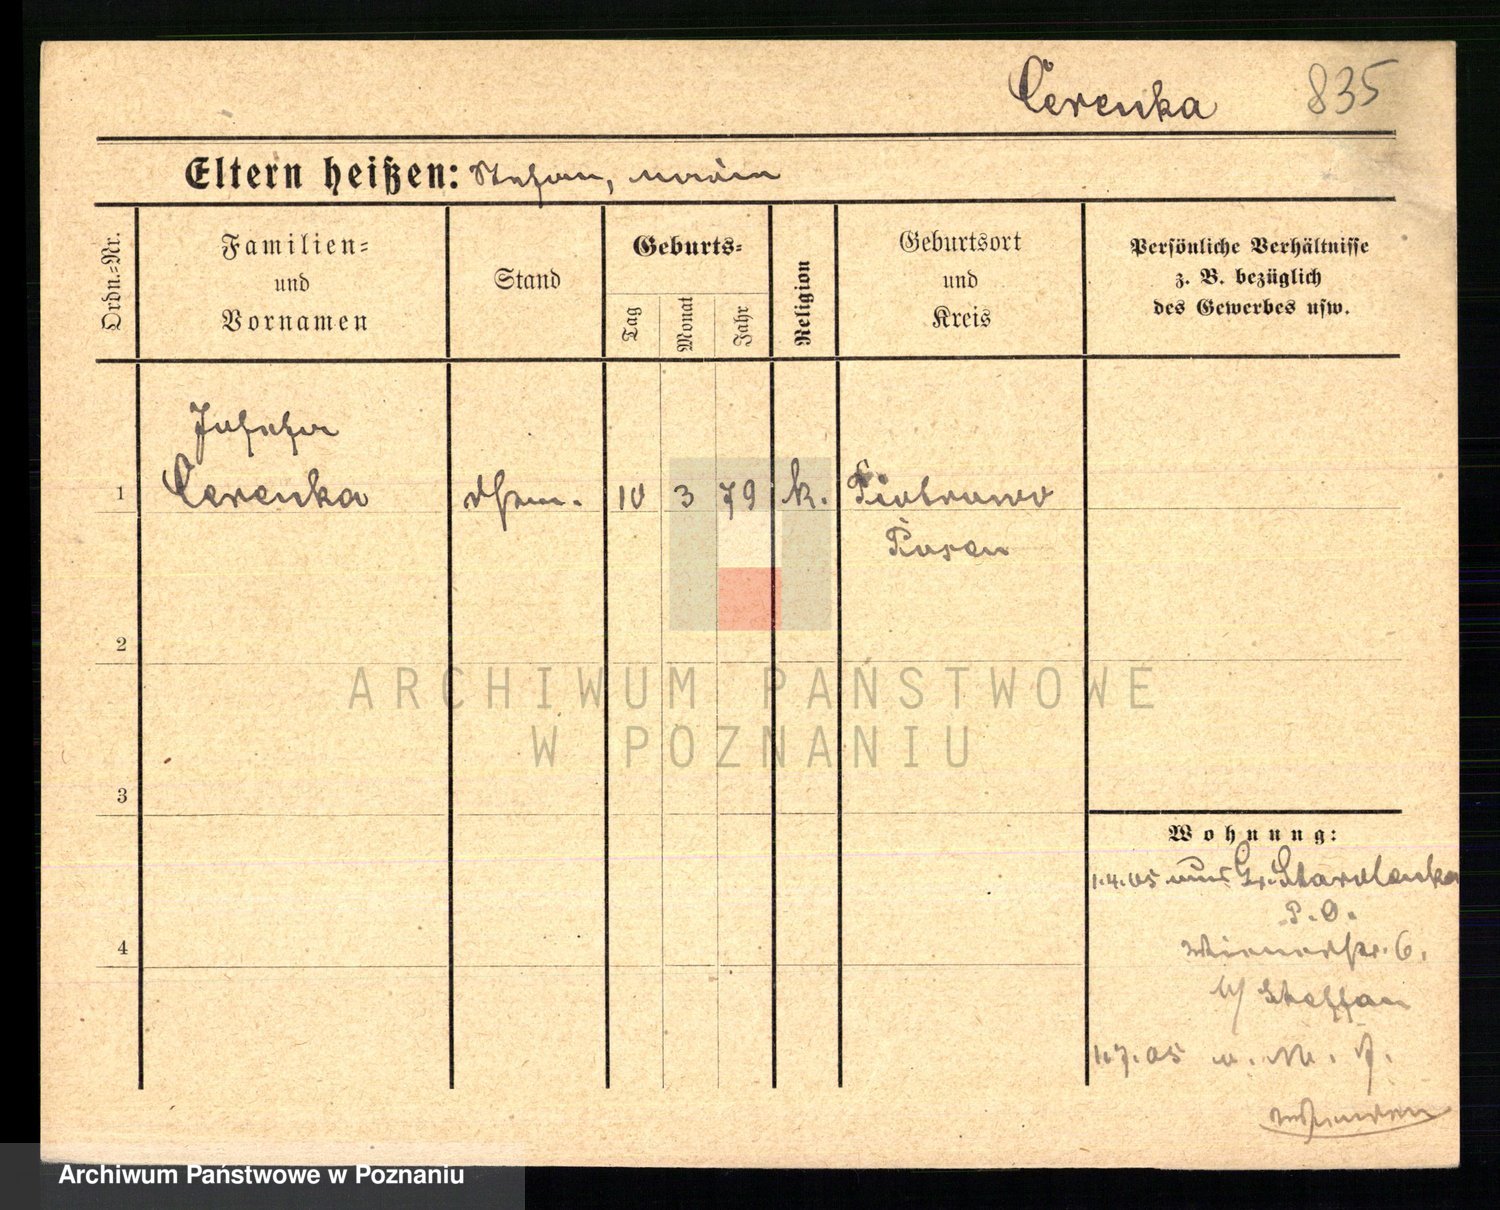 Cerenka 835
Eltern heißen: Stefan, Maria
Ordn.=Nr.
Familien=
und
Vornamen
Stand
Geburts=
Tag
Monat
Jahr
Religion
Geburtsort
und
Kreis
Persönliche Verhältnisse
z. B. bezüglich
des Gewerbes usw.
Josefa
1 Cerenka 10 3 79 k. Piotrowo
Posen
2
3
4
Wohnung:
1.4.05 aus Gr. Starolenka
P. O.
Wienerstr. 6.
b/ Steffan
1.7.05
ARCHIWUM PAŃSTWOWE
W POZNANIU
Archiwum Państwowe w Poznaniu